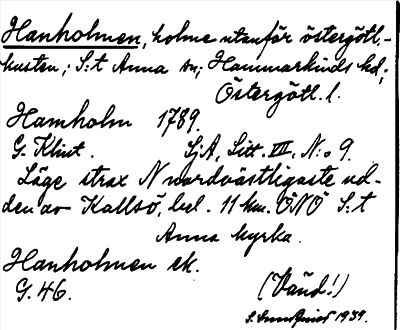 Hanholmen, holme utanför östergötl.-
kusten; S:t Anna sn; Hammarkinds hd;
Östergötl. l.
Hamholm 1789.
G. Klint. SjA, Litt. VII, N:o 9.
Läge strax N nordvästligaste ud-
den av Kallsö, bel. 11 km. ÖNÖ S:t
Anna kyrka.
Hanholmen ek.
G. 46. (Vänd!)
1939.